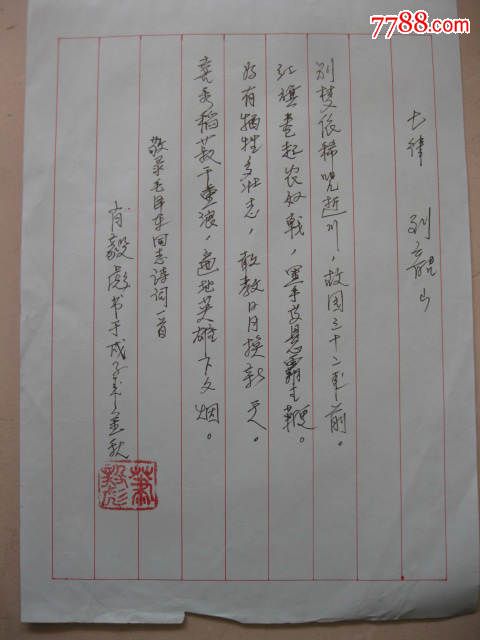 7788.com
七律 到韶山
别梦依稀咒逝川，故园三十二年前。
红旗卷起农奴戟，黑手高悬霸主鞭。
为有牺牲多壮志，敢教日月换新天。
喜看稻菽千重浪，遍地英雄下夕烟。
敬录毛泽东同志诗词一首
肖毅彪书于戊子年秋
萧毅彪